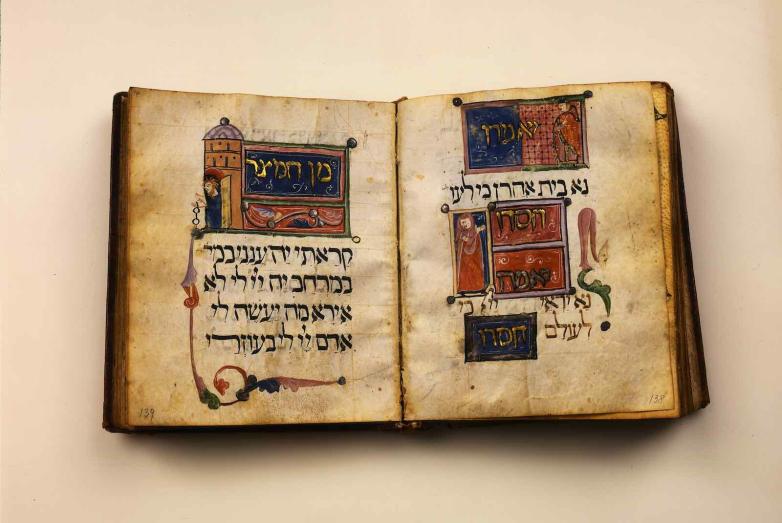 יאמרו
נא בית אהרן כי לעו
חסדו
יאמרו
נא יראי יי כי
לעולם
חסדו
138
מן המצר
קראתי יה ענני במר
במרחב יה יי לי לא
אירא מה יעשה לי
אדם יי לי בעוזרי
139